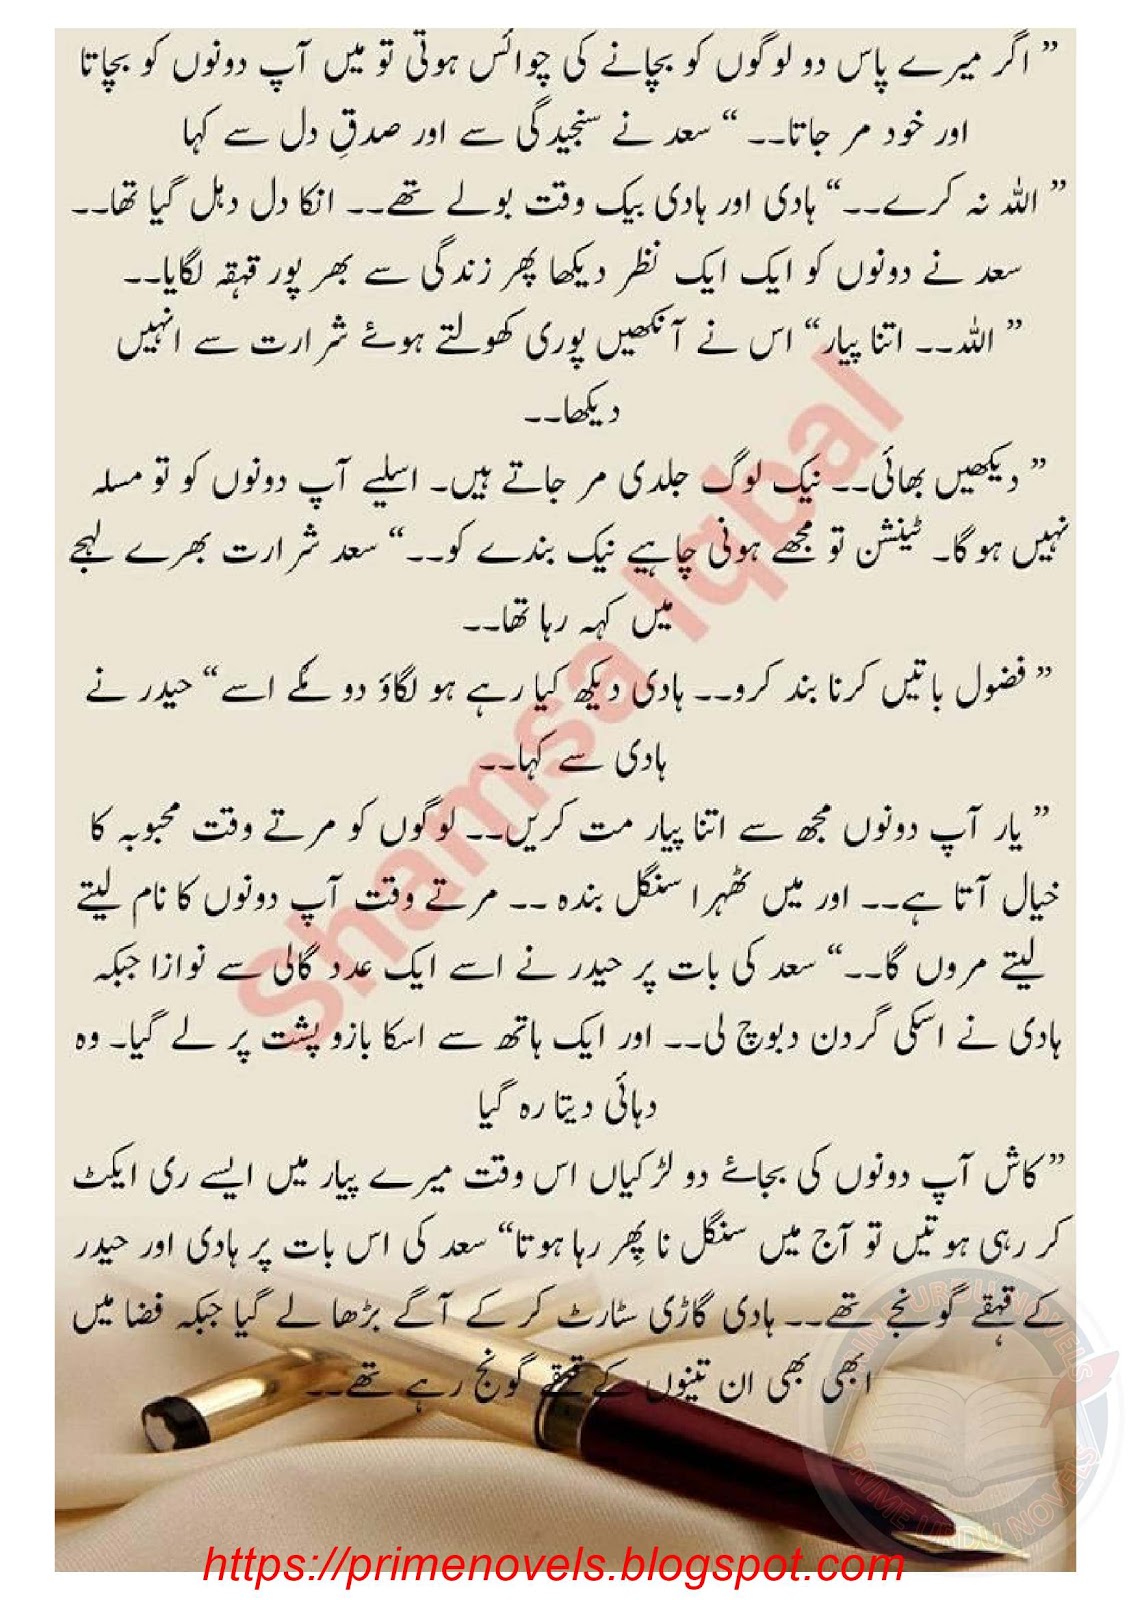 ” اگر میرے پاس دو لوگوں کو بچانے کی چوائس ہوتی تو میں آپ دونوں کو بچاتا
اور خود مر جاتا۔۔ “ سعد نے سنجیدگی سے اور صدقِ دل سے کہا
” اللہ نہ کرے۔۔“ ہادی اور ہادی بیک وقت بولے تھے۔۔ انکا دل دہل گیا تھا۔۔
سعد نے دونوں کو ایک ایک نظر دیکھا پھر زندگی سے بھر پور قہقہ لگایا۔۔
” اللہ۔۔ اتنا پیار“ اس نے آنکھیں پوری کھولتے ہوئے شرارت سے انہیں
دیکھا۔۔
” دیکھیں بھائی۔۔ نیک لوگ جلدی مر جاتے ہیں۔ اسلیے آپ دونوں کو تو مسلہ
نہیں ہوگا۔ ٹینشن تو مجھے ہونی چاہیے نیک بندے کو۔۔“ سعد شرارت بھرے لہجے
میں کہہ رہا تھا۔۔
” فضول باتیں کرنا بند کرو۔۔ ہادی دیکھ کیا رہے ہو لگاؤ دو مُکے اسے“ حیدر نے
ہادی سے کہا۔۔
” یار آپ دونوں مجھ سے اتنا پیار مت کریں۔۔ لوگوں کو مرتے وقت محبوبہ کا
خیال آتا ہے۔۔ اور میں ٹھہرا سنگل بندہ ۔۔ مرتے وقت آپ دونوں کا نام لیتے
لیتے مروں گا۔۔“ سعد کی بات پر حیدر نے اسے ایک عدد گالی سے نوازا جبکہ
ہادی نے اسکی گردن دبوچ لی۔۔ اور ایک ہاتھ سے اسکا بازو پشت پر لے گیا۔ وہ
دہائی دیتا رہ گیا
”کاش آپ دونوں کی بجائے دو لڑکیاں اس وقت میرے پیار میں ایسے ری ایکٹ
کر رہی ہوتیں تو آج میں سنگل نا پِھر رہا ہوتا“ سعد کی اس بات پر ہادی اور حیدر
کے قہقہے گونجے تھے۔۔ ہادی گاڑی سٹارٹ کر کے آگے بڑھا لے گیا جبکہ فضا میں
ابھی بھی ان تینوں کے قہقہے گونج رہے تھے۔۔
Shamsa Iqbal
PRIME URDU NOVELS
PRIME URDU NOVELS
https://primenovels.blogspot.com